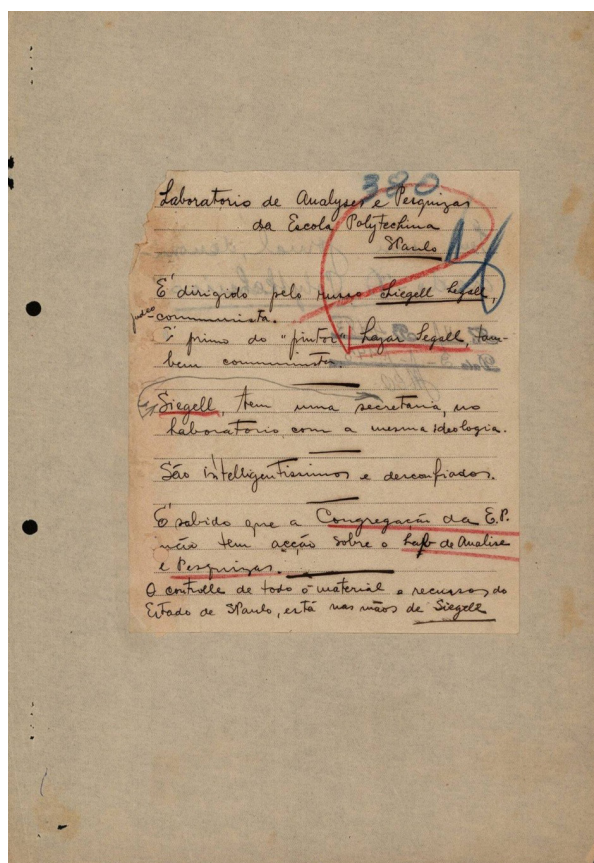 380
Laboratorio de Analyses e Pesquizas
da Escola Polytechina
SPaulo
É dirigido pelo russo Siegell Segall,
judeo-communista.
É primo do "pintor" Lazar Segall, tam-
bem communista.
Siegell, tem uma secretaria, no
Laboratorio, com a mesma ideologia.
São intelligentissimos e desconfiados.
É sabido que a Congregação da E.P.
não tem acção sobre o Lab de Analise
e Pesquizas.
O controlle de todo o material e recursos do
Estado de SPaulo, está nas mãos de Siegell